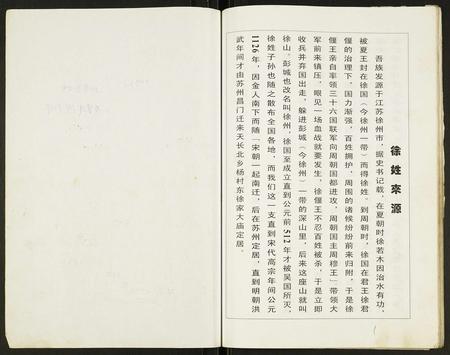 徐姓來源
吾族发源于江苏徐州市，据史书记载，在夏朝时徐若木因治水有功，
被夏王封在徐国（今徐州一带）而得徐姓。到周朝时，徐国在君王徐君
偃的治理下，国力渐强，百姓拥护，周围的诸候纷纷前来归附，于是徐
偃王亲自率领三十六国联军向周朝国都进攻，周朝国主周穆王一带领大
军前来镇压，眼见一场血战就要发生，徐偃王不忍百姓被杀，于是立即
收兵并弃国出走，躲进彭城（今徐州）一带的深山里，后来这座山就叫
徐山。彭城也改名叫徐州，徐国至成立直到公元前512年才被吴国所灭，
徐姓子孙也随之散布全国各地，而我们这一支直到宋代高宗年间公元
1126年，因金人南下而随「宋朝一起南迁，后在苏州定居，直到明朝洪
武年间才由苏州昌门迁来天长北乡杨村东徐家大庙定居。